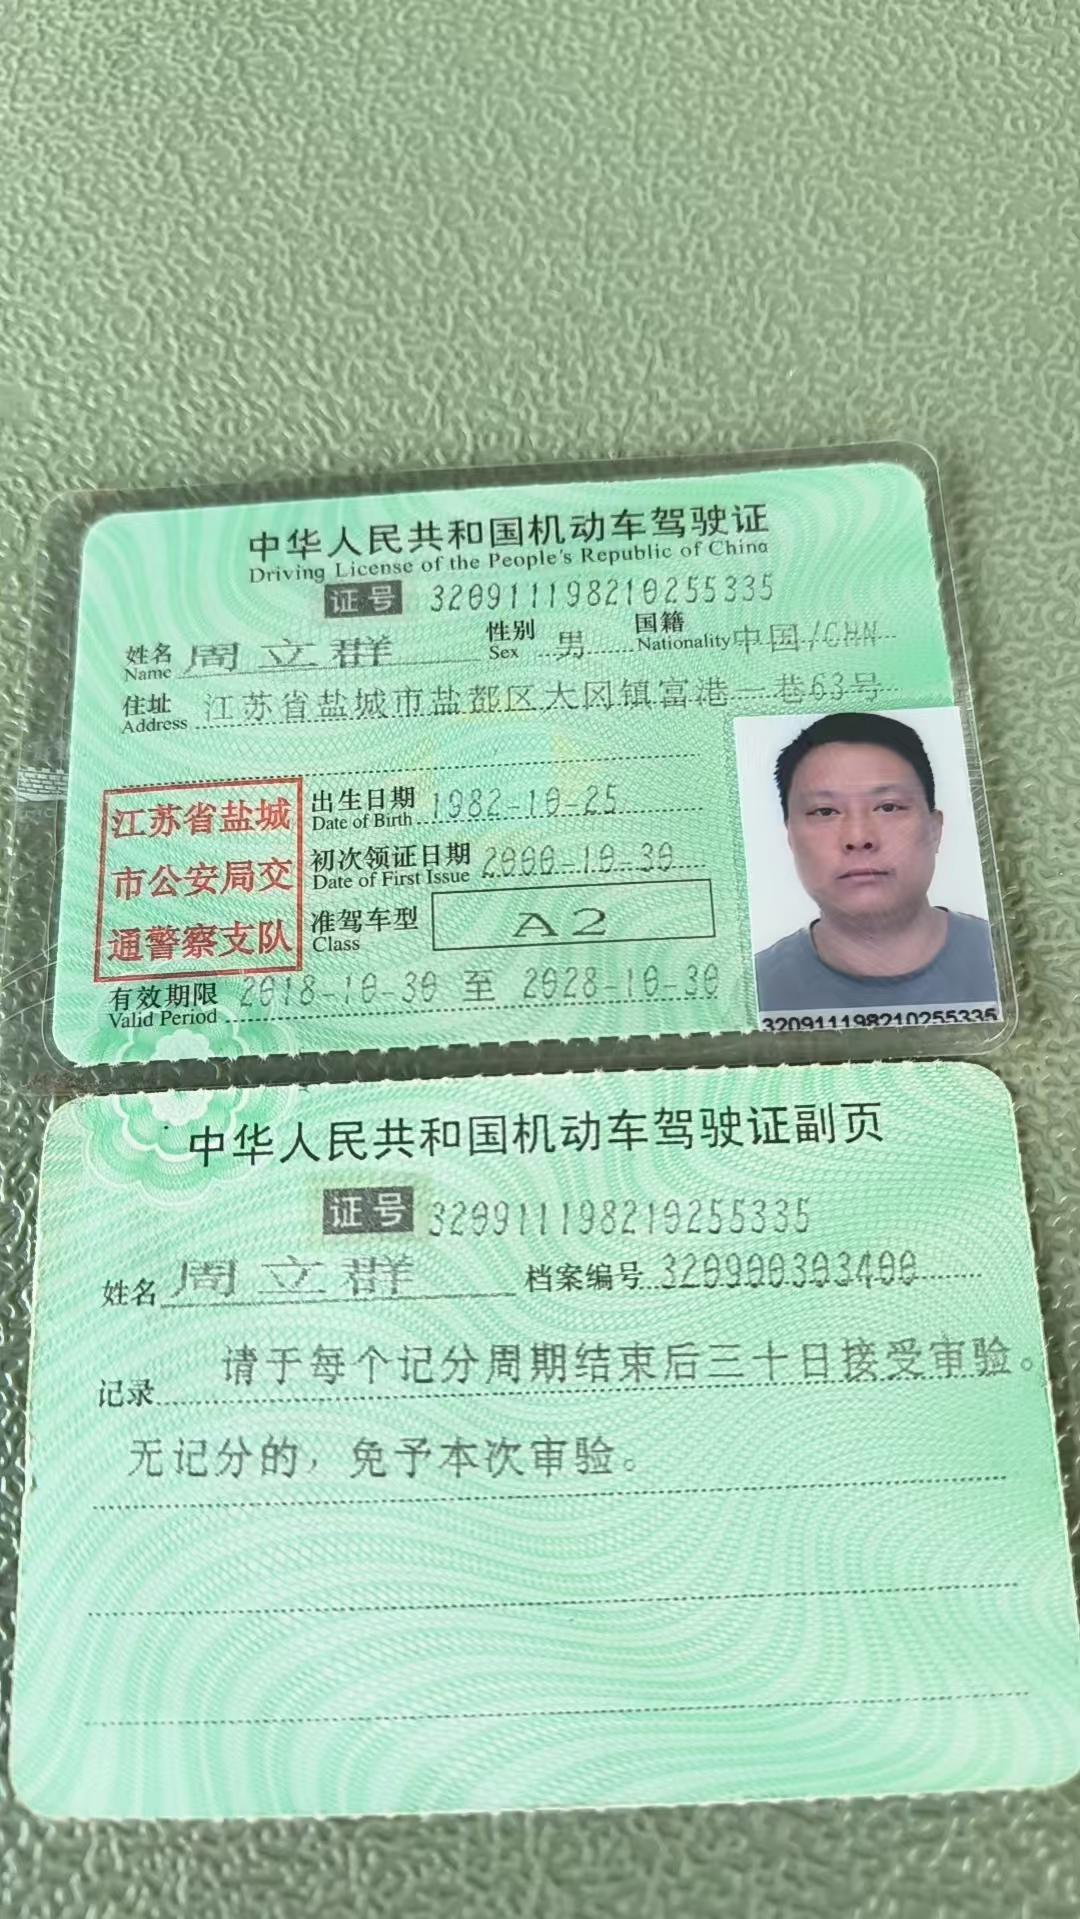 中华人民共和国机动车驾驶证
Driving License of the People's Republic of China
证号 320911198210255335
姓名 周立群 性别 男 国籍 中国/CHN
Name Sex Nationality
住址 江苏省盐城市盐都区大冈镇富港一巷63号
Address
江苏省盐城
市公安局交
通警察支队
出生日期 1982-10-25
Date of Birth
初次领证日期 2000-10-30
Date of First Issue
准驾车型 A2
Class
有效期限 2018-10-30 至 2028-10-30
Valid Period
320911198210255335
中华人民共和国机动车驾驶证副页
证号 320911198210255335
姓名 周立群 档案编号 320900303400
记录 请于每个记分周期结束后三十日接受审验。
无记分的，免予本次审验。